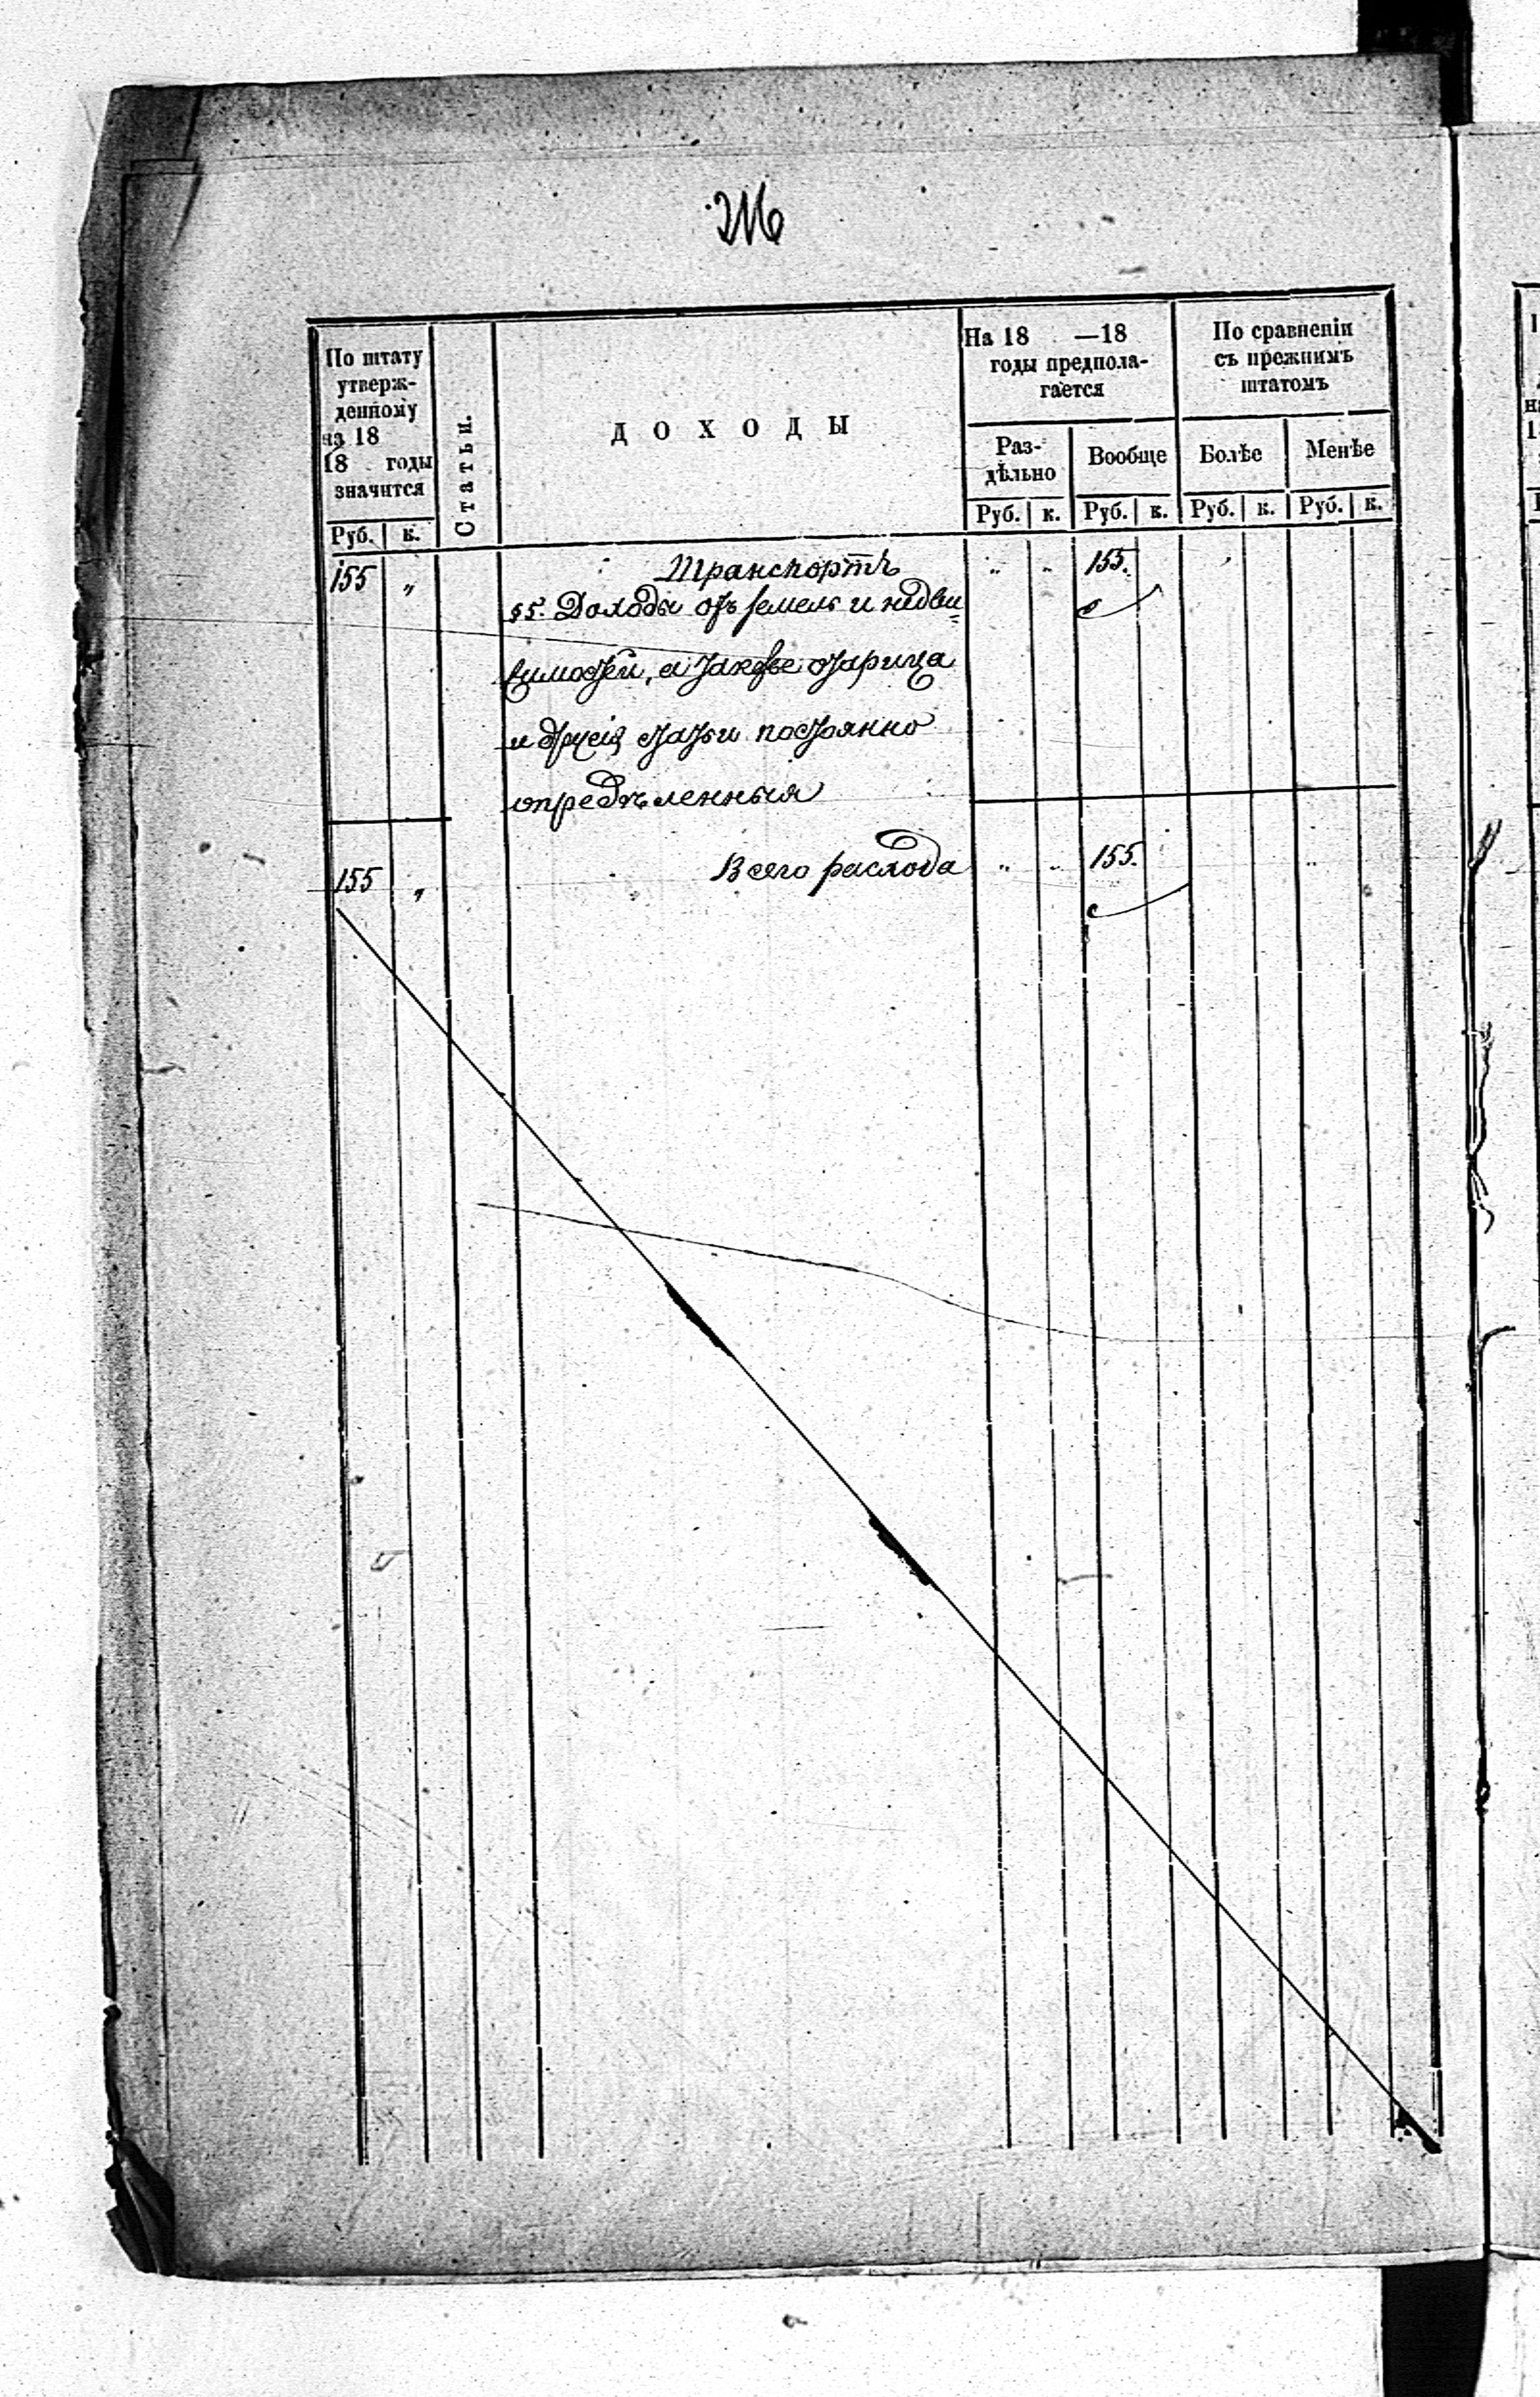 По штату
утверж-
денному
на 18
18 годы
значится
Руб. к.
Статьи.
ДОХОДЫ
На 18 —18
годы предпола-
гается
Раз-
дѣльно
Вообще
Руб. к. Руб. к.
По сравненіи
съ прежнимъ
штатомъ
Болѣе Менѣе
Руб. к. Руб. к.
155 „ Транспортъ „ „ 155.
§5. Доходы отъ земель и недви=
жимостей, а также
и другія статьи постоянно
опредѣленныя
155 „ Всего расхода „ „ 155.